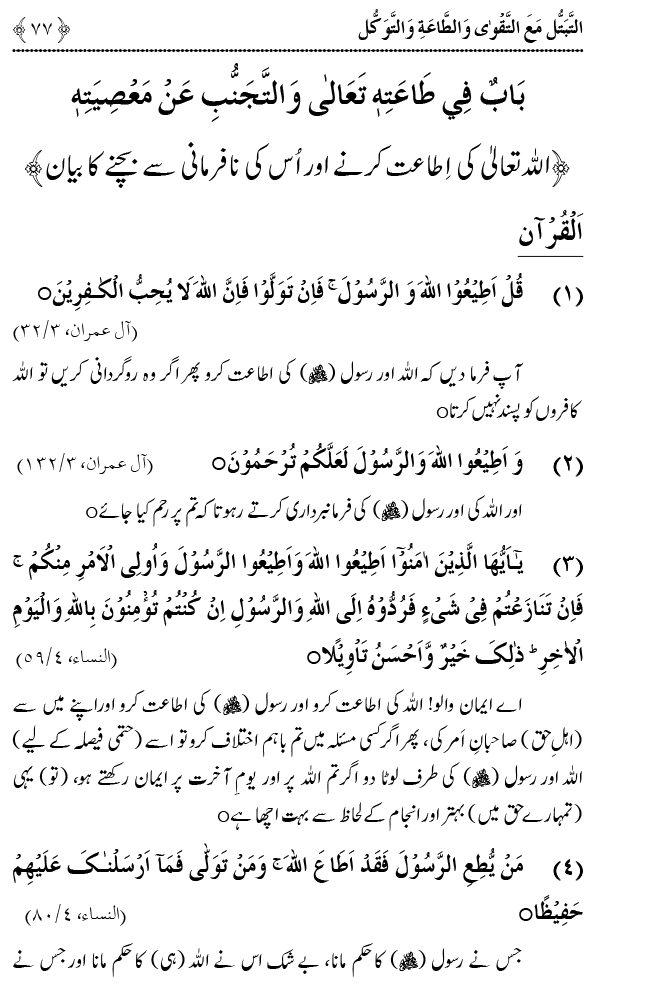 التَّبَتُّل مَعَ التَّقْوٰى وَالطَّاعَةِ وَالتَّوَكُّل ﴿٧٧﴾
بَابٌ فِي طَاعَتِهٖ تَعَالٰى وَالتَّجَنُّبِ عَنْ مَعْصِيَتِهٖ
﴿اللہ تعالیٰ کی اِطاعت کرنے اور اُس کی نافرمانی سے بچنے کا بیان﴾
اَلْقُرْآن
(١) قُلْ اَطِيْعُوْا اللهَ وَ الرَّسُوْلَ ۚ فَاِنْ تَوَلَّوْا فَاِنَّ اللهَ لَا يُحِبُّ الْكٰفِرِيْنَo
(آل عمران، ٣/٣٢)
آپ فرما دیں کہ اللہ اور رسول (ﷺ) کی اطاعت کرو پھر اگر وہ روگردانی کریں تو اللہ
کافروں کو پسند نہیں کرتاo
(٢) وَ اَطِيْعُوا اللهَ وَالرَّسُوْلَ لَعَلَّكُمْ تُرْحَمُوْنَo (آل عمران، ٣/١٣٢)
اور اللہ کی اور رسول (ﷺ) کی فرمانبرداری کرتے رہو تا کہ تم پر رحم کیا جائےo
(٣) يٰٓاَيُّهَا الَّذِيْنَ اٰمَنُوْٓا اَطِيْعُوا اللهَ وَاَطِيْعُوا الرَّسُوْلَ وَاُولِى الْاَمْرِ مِنْكُمْ ۚ
فَاِنْ تَنَازَعْتُمْ فِىْ شَىْءٍ فَرُدُّوْهُ اِلَى اللهِ وَالرَّسُوْلِ اِنْ كُنْتُمْ تُؤْمِنُوْنَ بِاللهِ وَالْيَوْمِ
الْاٰخِرِ ؕ ذٰلِكَ خَيْرٌ وَّاَحْسَنُ تَاْوِيْلًاo (النساء، ٤/٥٩)
اے ایمان والو! اللہ کی اطاعت کرو اور رسول (ﷺ) کی اطاعت کرو اوراپنے میں سے
(اہلِ حق) صاحبانِ اَمر کی، پھر اگر کسی مسئلہ میں تم باہم اختلاف کرو تو اسے (حتمی فیصلہ کے لیے)
اللہ اور رسول (ﷺ) کی طرف لوٹا دو اگر تم اللہ پر اور یومِ آخرت پر ایمان رکھتے ہو، (تو) یہی
(تمہارے حق میں) بہتر اور انجام کے لحاظ سے بہت اچھا ہےo
(٤) مَنْ يُّطِعِ الرَّسُوْلَ فَقَدْ اَطَاعَ اللهَ ۚ وَمَنْ تَوَلّٰى فَمَآ اَرْسَلْنٰكَ عَلَيْهِمْ
حَفِيْظًاo (النساء، ٤/٨٠)
جس نے رسول (ﷺ) کا حکم مانا، بے شک اس نے اللہ (ہی) کا حکم مانا اور جس نے